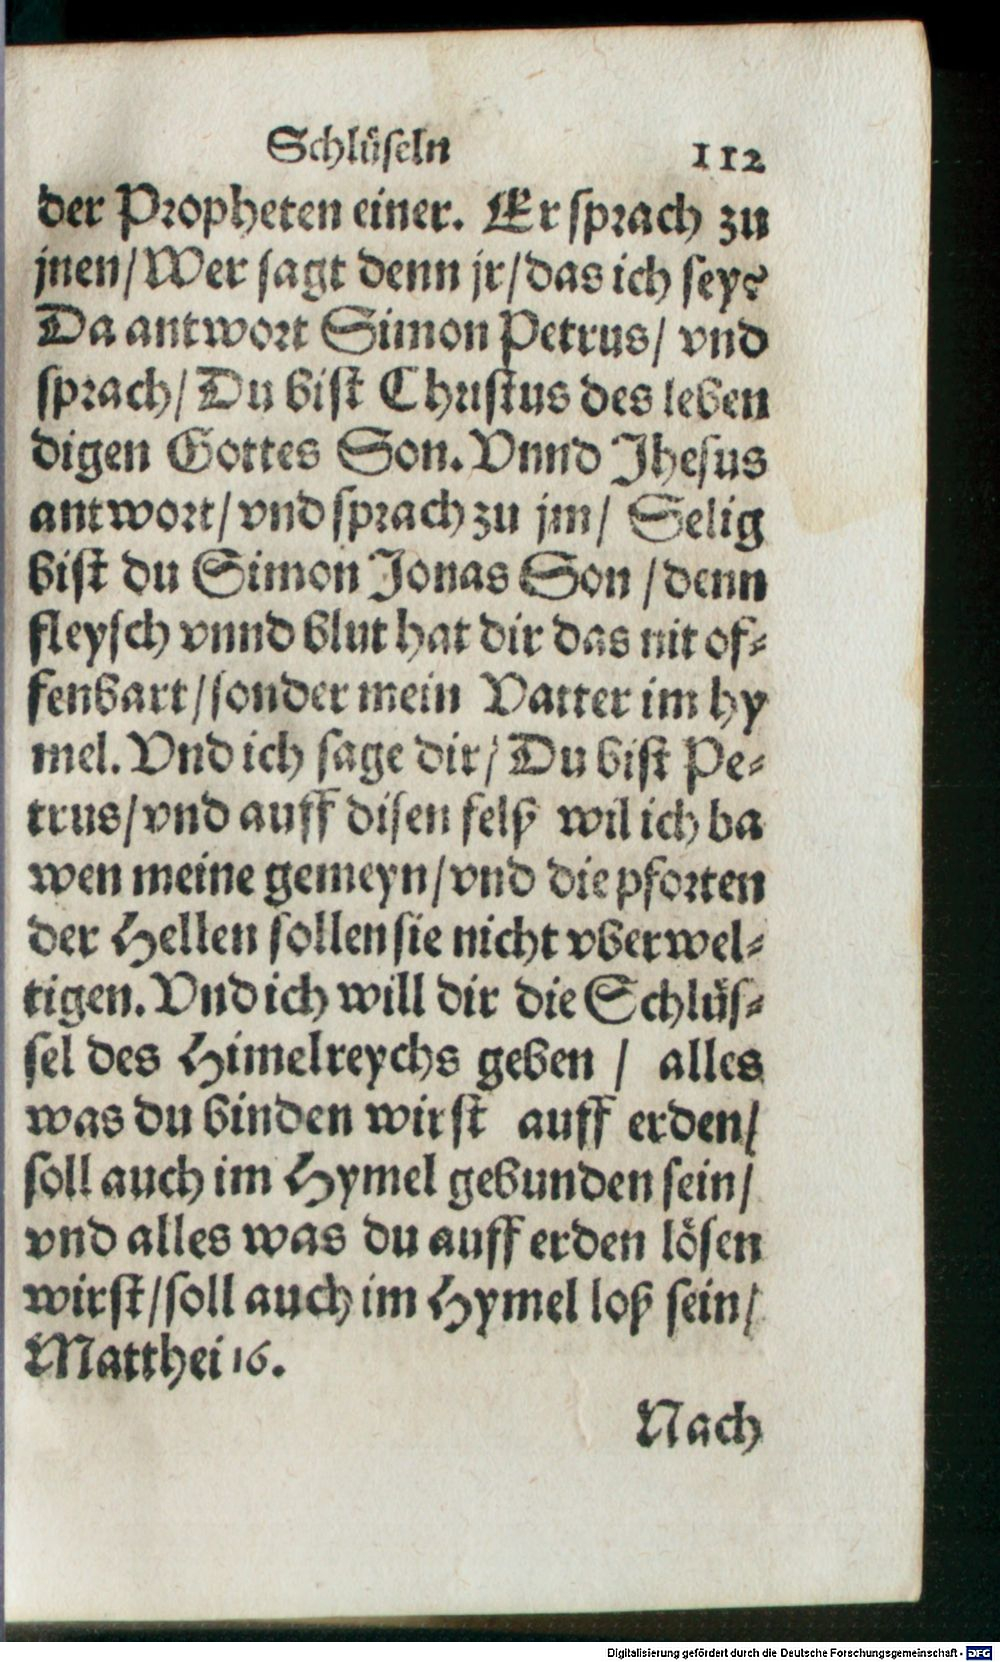 Schlüseln 112
der Propheten einer. Er sprach zu
jnen/Wer sagt denn jr/das ich sey?
Da antwort Simon Petrus/ vnd
sprach/ Du bist Christus des leben
digen Gottes Son. Vnnd Jhesus
antwort/ vnd sprach zu jm/ Selig
bist du Simon Jonas Son /denn
fleysch vnnd blut hat dir das nit of-
fenbart/sonder mein Vatter im hy
mel. Vnd ich sage dir/ Du bist Pe-
trus/vnd auff disen felß wil ich ba
wen meine gemeyn/vnd die pforten
der Hellen sollen sie nicht vberwel-
tigen. Vnd ich will dir die Schlüs-
sel des Himelreychs geben / alles
was du binden wirst auff erden/
soll auch im Hymel gebunden sein/
vnd alles was du auff erden lösen
wirst/soll auch im Hymel loß sein/
Matthei 16.
Nach
Digitalisierung gefördert durch die Deutsche Forschungsgemeinschaft - DFG